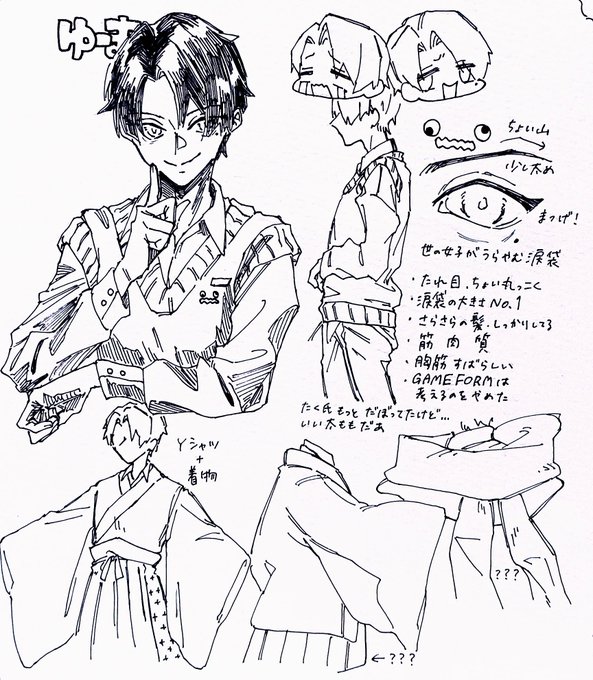 ゆーま
ちょい山
少し太め
まつげ!
世の女子がうらやむ涙袋
・たれ目、ちょい丸っこく
・涙袋の大きさNo.1
・さらさらの髪、しっかりしてる
・筋肉質
・胸筋すばらしい
・GAMEFORMは
考えるのをやめた
たく氏もっとだぼってたけど…
いい太ももだぁ
Yシャツ
+
着物
???
←???